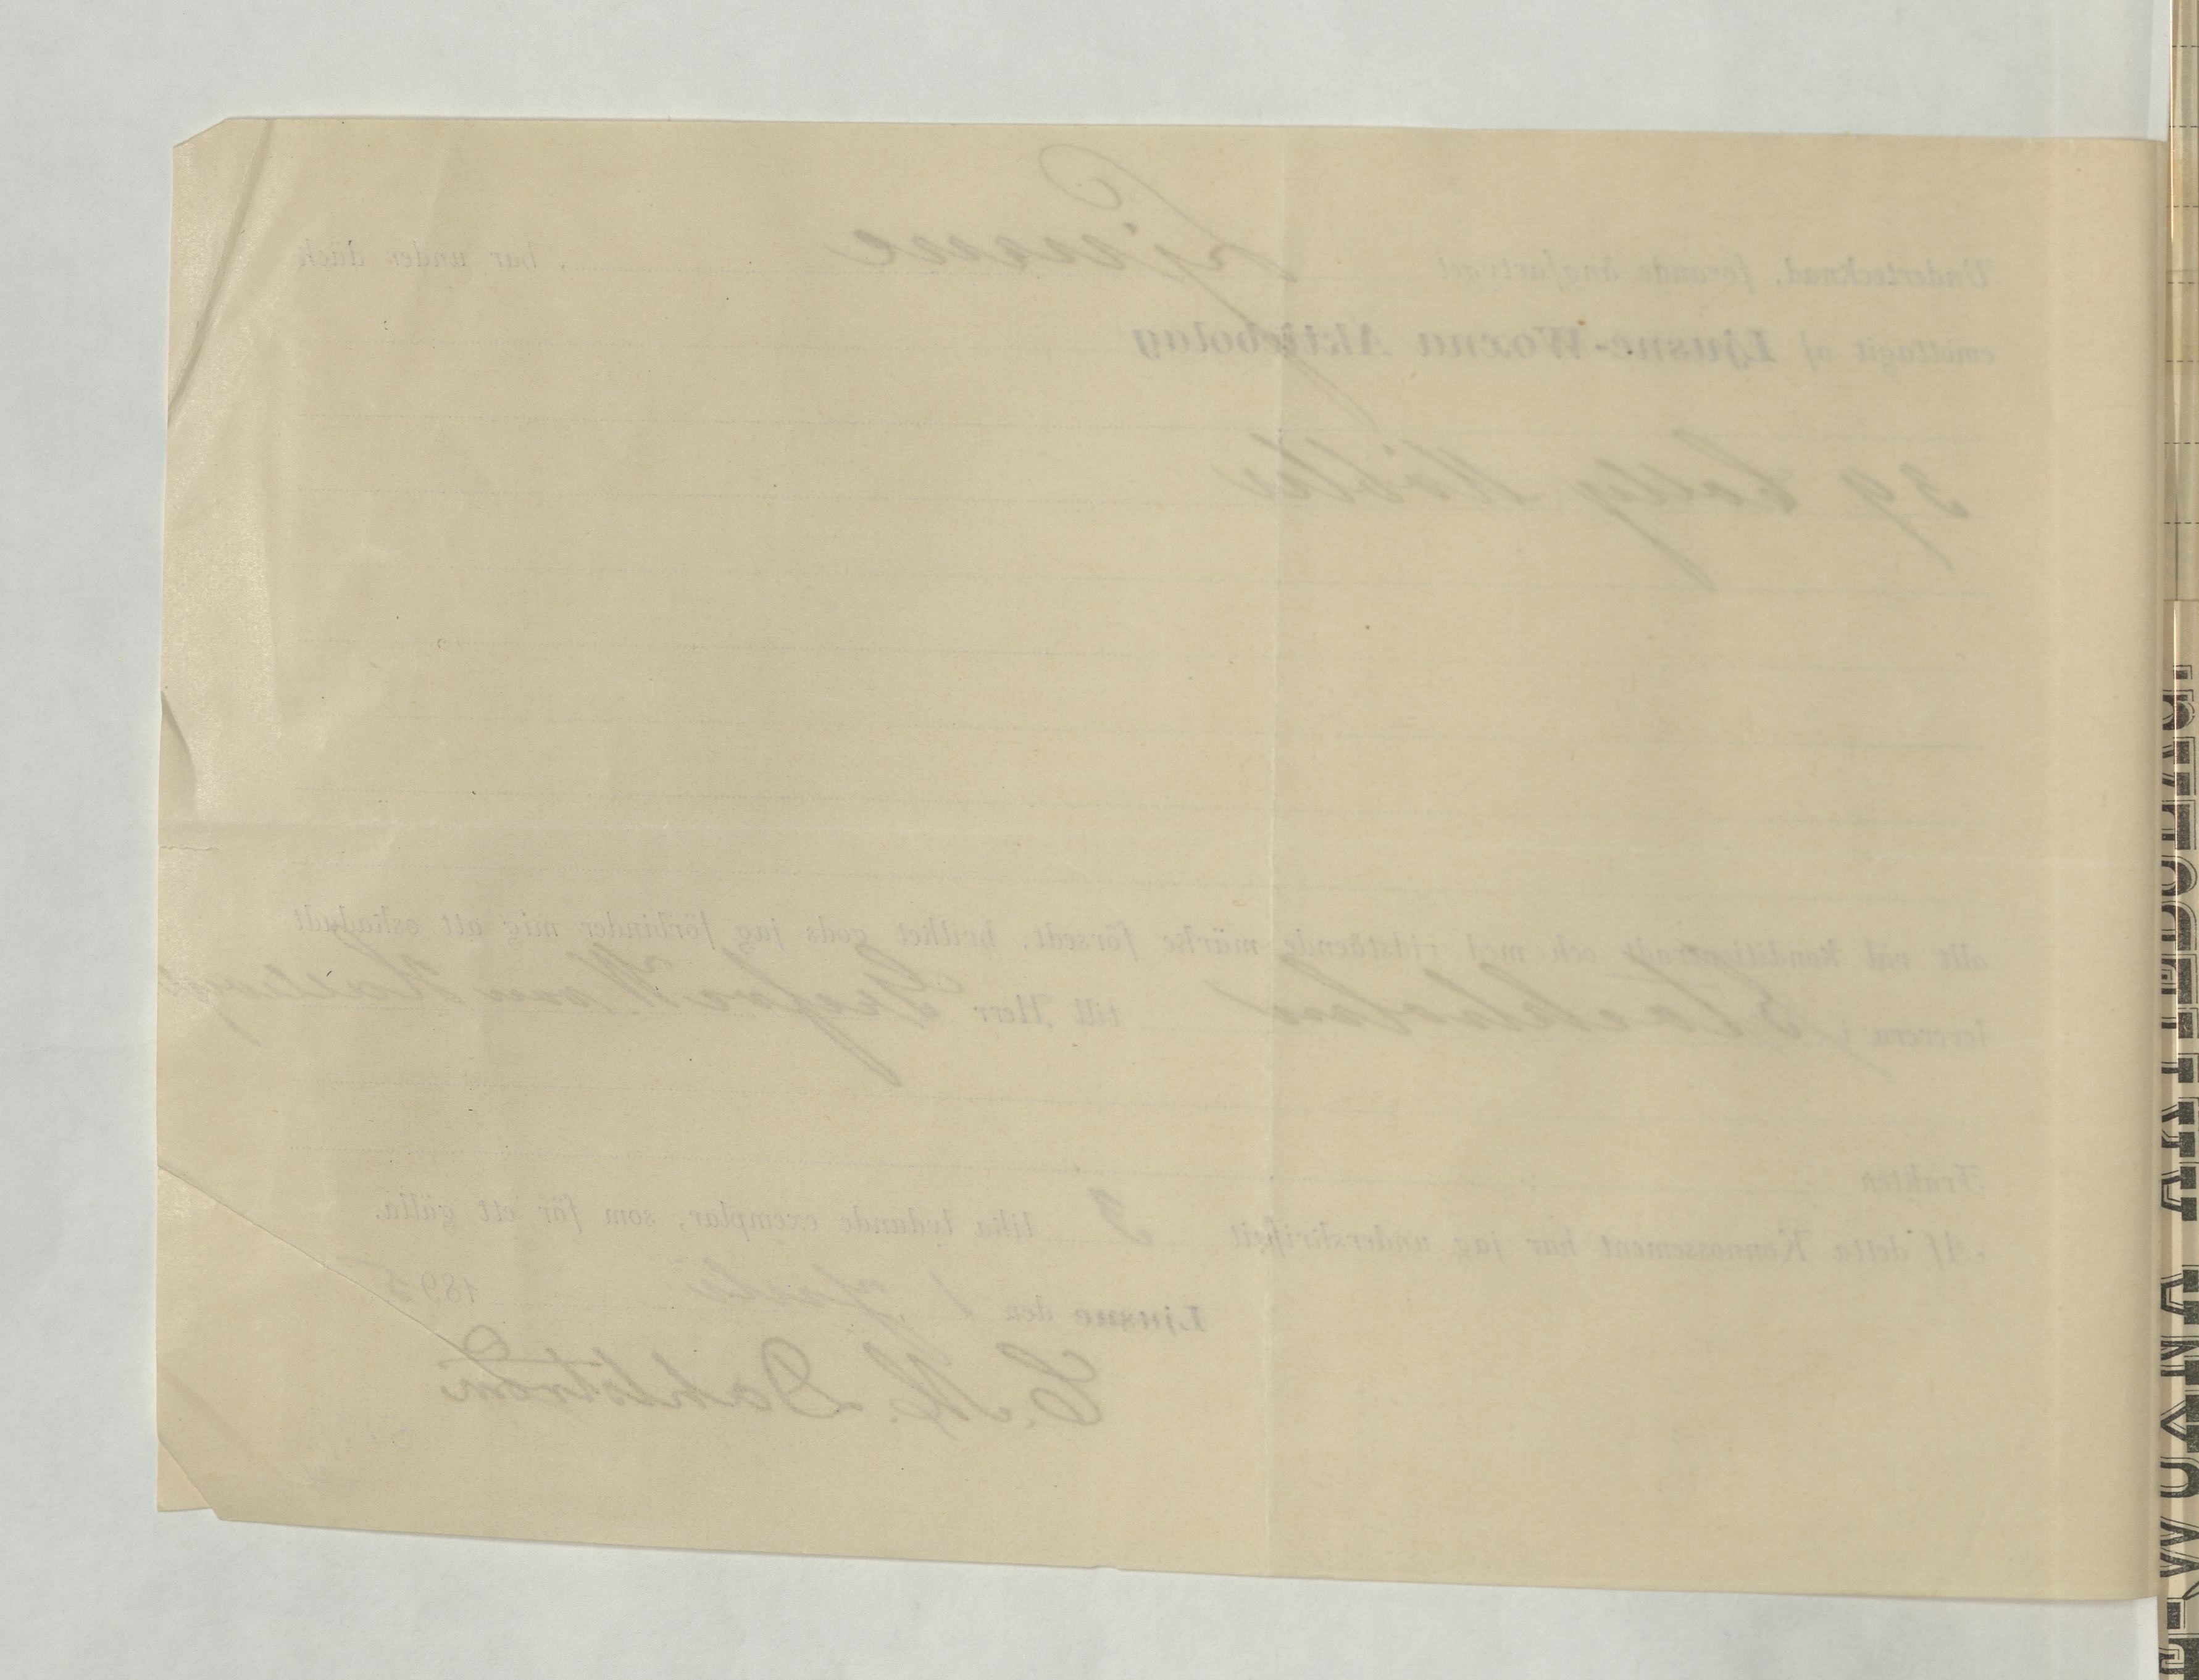 Undertecknad, förande ångfartyget Ljusne, har under däck
emottagit af Ljusne-Woxna Aktiebolag
39 Colly Möbler
allt väl konditioneradt och med vidstående märke försedt, hvilket gods jag förbinder mig att oskadadt
leverera i Stockholm till Herr Grefve W. von Hallwyl
Frakten
Af detta Konnossement har jag underskrifvit 3 lika lydande exemplar, som för ett gälla.
Ljusne den 1 1895
C. M. Dahlström